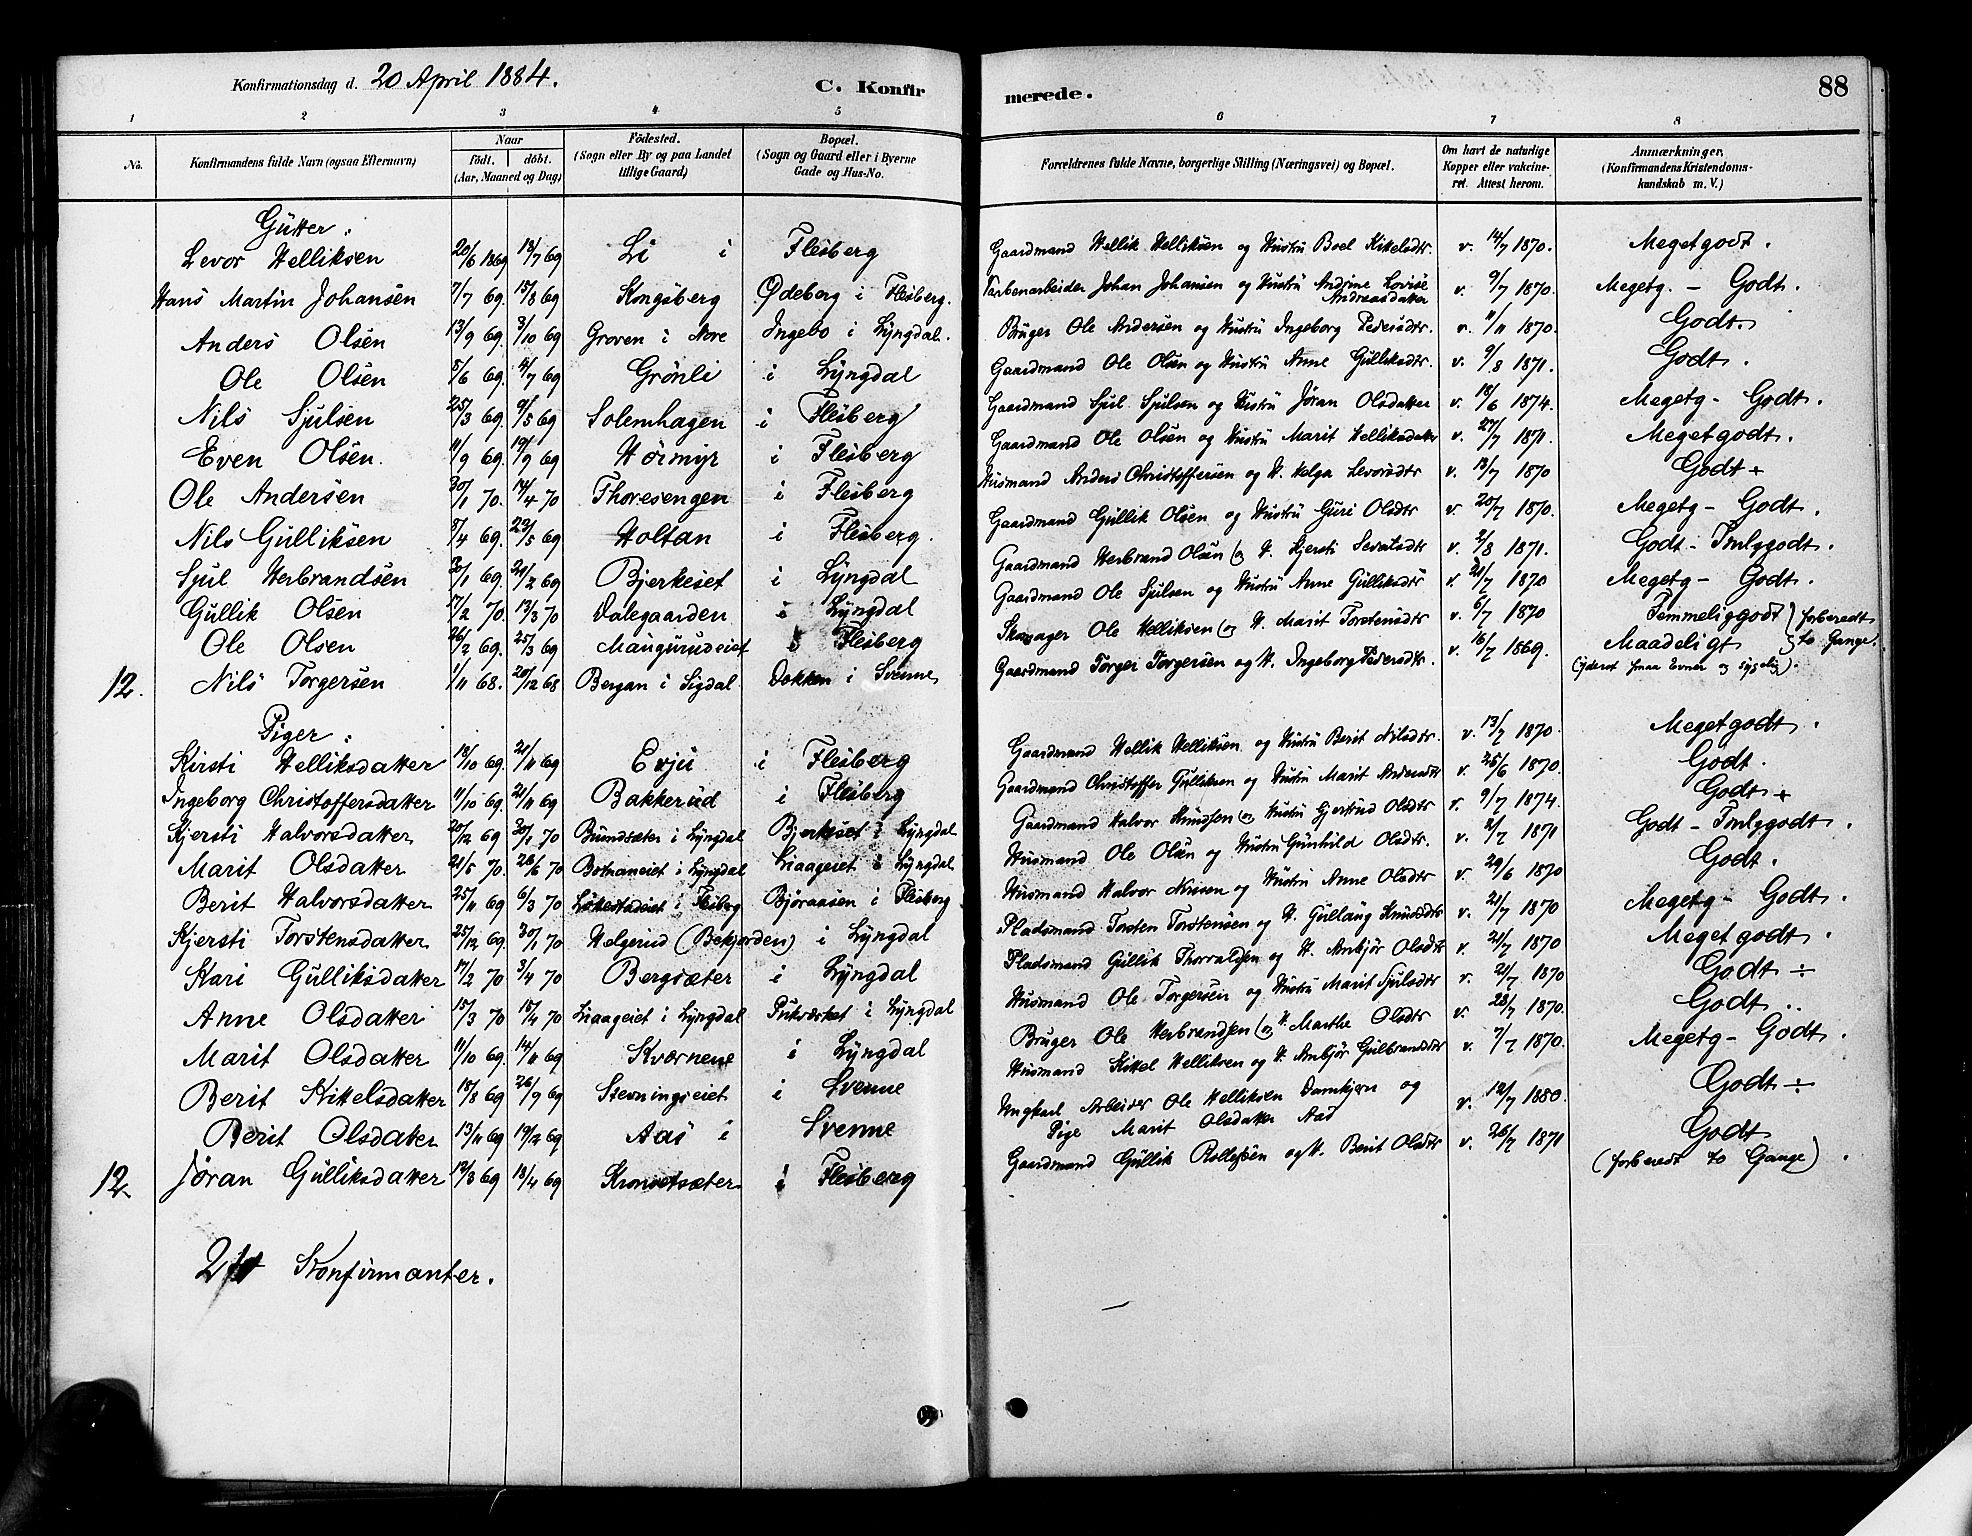 Konfirmationsdag d. 20 April 1884. C. Konfirmerede. 88
1 2 3 4 5 6 7 8
No. Konfirmandens fulde Navn (ogsaa Efternavn) Naar födt. döbt. (Aar, Maaned og Dag) Födested. (Sogn eller By og paa Landet tillige Gaard) Bopæl. (Sogn og Gaard eller i Byerne Gade og Hus-No. Forældrenes fulde Navne, borgerlige Stilling (Næringsvei) og Bopæl. Om havt de naturlige Kopper eller vakcineret. Attest herom. Anmærkninger, (Konfirmandens Kristendomskundskab m. V.)
Gutter:
Levor Helliksen 20/6 1869 18/7 69 Li i Flesberg Gaardmand Hellik Helliksen og Hustru Boel Kittelsdtr. v. 14/7 1870. Megetgodt.
Hans Martin Johansen 7/7 69. 15/8 69 Kongsberg Ødeberg i Flesberg. Johan Johansen og Hustru Andrine Lovise Andreasdatter v. 9/7 1870. Megetg. - Godt.
Anders Olsen 13/9 69. 3/10 69 Groven i Nore Ingebo i Lyngdal. Bruger Ole Andersen og Hustru Ingeborg Pedersdtr. v. 11/11 1870. Godt.
Ole Olsen 5/6 69. 4/7 69 Grönli i Lyngdal Gaardmand Ole Olsen og Hustru Anne Gulliksdtr v. 9/8 1871. Godt.
Nils Sjulsen 25/3 69. 9/5 69 Solemhagen i Flesberg Gaardmand Sjul Sjulsen og Hustru Jöran Olsdatter v. 18/6 1874. Megetg - Godt.
Even Olsen. 11/9 69. 19/9 69 Hörmyr i Flesberg Gaardmand Ole Olsen og Hustru Marit Helliksdatter v. 27/7 1871. Megetgodt.
Ole Andersen 30/1 70. 14/4 70 Thoresengen i Flesberg Husmand Anders Christoffersen og H. Helga Levorsdtr v. 13/7 1870 Godt +
Nils Gulliksen 8/4 69. 23/5 69 Holtan i Flesberg. Gaardmand Gullik Olsen og Hustru Guri Olsdtr v. 20/7 1870. Megetg - Godt.
Sjul Herbrandsen 30/1 69. 21/2 69 Bjerkeset i Lyngdal Gaardmand Herbrand Olsen og H. Kjersti v. 2/8 1871. Godt - Tmlggodt.
Gullik Olsen 17/2 70. 13/3 70 Dalegaarden i Lyngdal Gaardmand Ole Sjulsen og Hustru Anne Gulliksdtr v. 21/7 1870 Megetg - Godt.
Ole Olsen 26/2 69. 25/3 69 Maugurudeiet i Flesberg Ole Helliksen og H. Marit Torstensdtr v. 6/7 1870 Temmeliggodt (forberedt
12. Nils Torgersen 1/11 68. 20/12 68 Bergan i Sigdal Dokken i Svenne Gaardmand Torger Torgersen og H. Ingeborg Pedersdtr. v. 16/7 1869. Maadeligt to Gange)
(yderst smaa Evner og sygelig).
Piger:
Kirsti Helliksdatter 18/10 69. 21/11 69 Evju i Flesberg Gaardmand Hellik Helliksen og Hustru Berit Nilsdtr. v. 13/7 1870. Megetgodt.
Ingeborg Christoffersdatter 11/10 69. 21/11 69 Bakkerud i Flesberg Gaardmand Christoffer Gulliksen og Hustru Marit Andersdtr v. 25/6 1870. Godt.
Kjersti Halvorsdatter 20/12 69 30/1 70 Brundsæter i Lyngdal Bjerkeset i Lyngdal Gaardmand Halvor Knudsen og Hustru Gjertrud Olsdtr v. 9/7 1874. Godt +
Marit Olsdatter 21/5 70. 26/6 70 Botnaneiet i Lyngdal Liaageiet i Lyngdal Husmand Ole Olsen og Hustru Gunhild Olsdtr. v. 2/7 1871 Godt - Tmlggodt.
Berit Halvorsdatter 25/11 69 6/3 70 i Flesberg Björaasen i Flesberg Husmand Halvor og Hustru Anne Olsdtr v. 29/6 1870 Godt.
Kjersti Torstensdatter 25/12 69. 30/1 70 Helgerud (Bekjorden) i Lyngdal Pladsmand Torsten Torstensen og H. Gullaug Knudsdtr v. 21/7 1870 Megetg - Godt.
Kari Gulliksdatter 17/2 70 3/4 70 Bergsæter i Lyngdal Pladsmand Gullik Thorvaldsen og H. Anbjör Olsdtr v. 21/7 1870 Meget godt.
Anne Olsdatter 15/3 70 18/4 70 Liaageiet i Lyngdal Pukværket i Lyngdal Husmand Ole Torgersen og Hustru Marit Sjulsdtr v. 21/7 1870 Godt ÷
Marit Olsdatter 11/10 69. 14/11 69 Kværnene i Lyngdal Bruger Ole Herbrandsen og H. Marthe Olsdtr v. 23/7 1870. Godt.
Berit Kittelsdatter 18/8 69 26/9 69 Stevningseiet i Svenne Husmand Kittel Helliksen og H. Anbjör Gulbrandsdtr v. 7/7 1870. Megetg - Godt.
Berit Olsdatter 13/11 69 19/2 69 Aas i Svenne Ungkarl Arbeider Ole Helliksen Damkjern og Pige Marit Olsdatter Aas v. 12/7 1880. Godt ÷
12. Jöran Gulliksdatter 12/3 69 18/4 69 Kronsetsæter i Flesberg Gaardmand Gullik Rollefsen og H. Berit Olsdtr v. 26/7 1871 Godt
(forberedt to Gange).
24 Konfirmanter.